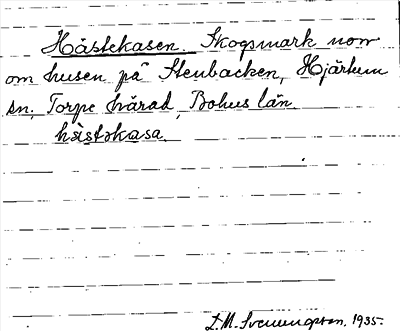 Hästekasen. Skogsmark norr
om husen på Stenbacken, Hjärtum
sn, Torpe härad, Bohus län.
hästəkasa.
L.M. Svenungsson, 1935.